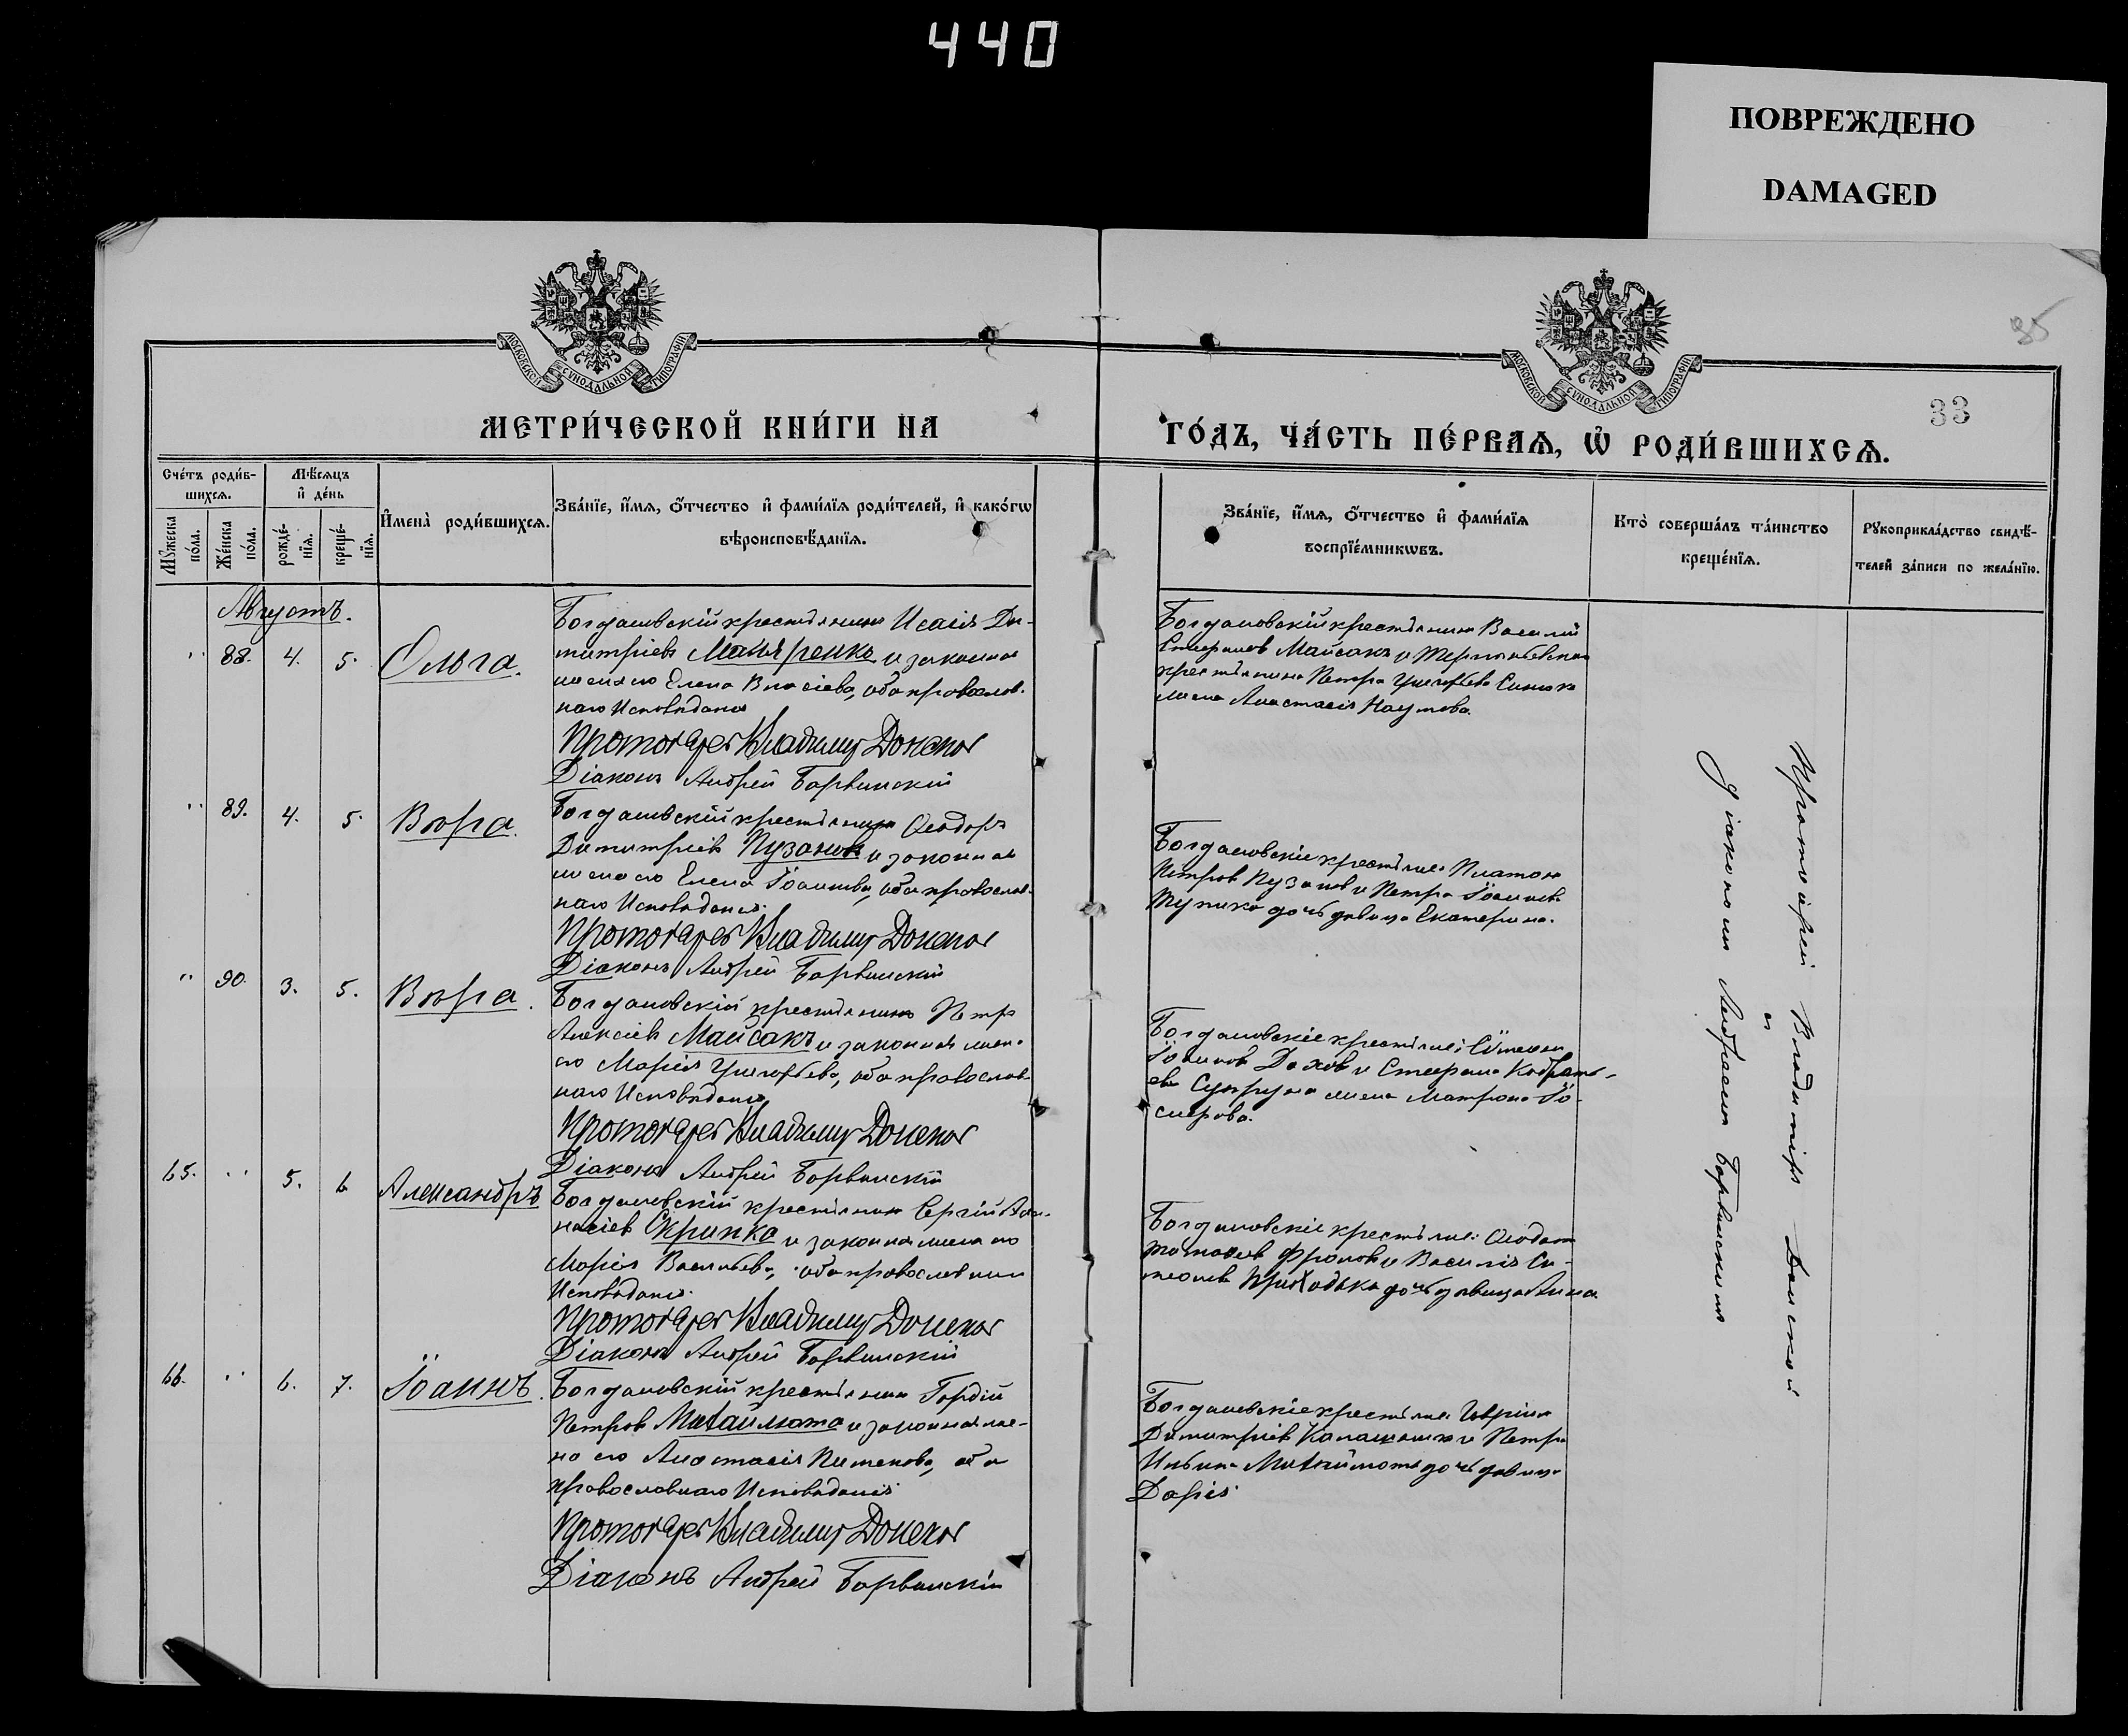 440
ПОВРЕЖДЕНО
DAMAGED
МОСКОВСКОЙ СѴНОДАЛЬНОЙ ТИПОГРАФІИ
МОСКОВСКОЙ СѴНОДАЛЬНОЙ ТИПОГРАФІИ
35
33
МЕТРИ́ЧЕСКОЙ КНИ́ГИ НА
ГО́ДЪ, ЧА́СТЬ ПЕ́РВАѦ, Ѡ҆ РОДИ́ВШИХСѦ.
Сче́тъ роди́в-
шихсѧ.
Мѣ́сѧцъ
и҆ де́нь
Мꙋ́жеска
по́ла.
Же́нска
по́ла.
рожде́-
нїѧ.
креще́-
нїѧ.
И҆мена̀ роди́вшихсѧ.
Зва́нїе, и҆́мѧ, ѻ҆́тчество и҆ фами́лїѧ роди́телей, и҆ како́гѡ
вѣроисповѣ́данїѧ.
Зва́нїе, и҆́мѧ, ѻ҆́тчество и҆ фами́лїѧ
воспрїе́мникѡвъ.
Кто̀ соверша́лъ та́инство
креще́нїѧ.
Рꙋкоприкла́дство свидѣ́-
телей за́писи по жела́нїю.
Августъ.
" 88. 4. 5. Ольга.
Богдановскій крестьянинъ Исаія Ди-
митріевъ и законная
жена его Елена Власіева, оба православ-
наго Исповѣданія
Протоіерей Владимір Донской
Діаконъ Андрей Барвинскій
Богдановскій крестьянинъ Василій
Стефановъ Майсакъ и
крестьянина Петра Григорьева
жена Анастасія Наумова.
" 89. 4. 5. Вѣра.
Богдановскій крестьянинъ Ѳеодоръ
Димитріевъ Пузановъ и законная
жена его Елена Іоаннова, оба православ-
наго Исповѣданія.
Протоіерей Владимір Донской
Діаконъ Андрей Барвинскій
Богдановскіе крестьяне: Платонъ
Петровъ Пузановъ и Петра Іоаннова
дочь дѣвица Екатерина.
" 90. 3. 5. Вѣра.
Богдановскій крестьянинъ Петръ
Алексіевъ Майсакъ и законная жена
его Марія Григорьева, оба православ-
наго Исповѣданія
Протоіерей Владимір Донской
Діаконъ Андрей Барвинскій
Богдановскіе крестьяне: Сѵмеонъ
Іоанновъ и Стефана Кодрать-
ева Супруна жена Матрона Іо-
сифова.
65. " 5. 6. Александръ
Богдановскій крестьянинъ Сергій Аѳа-
насіевъ Скрипка и законная жена его
Марія Васильева, оба православнаго
Исповѣданія.
Протоіерей Владимір Донской
Діаконъ Андрей Барвинскій
Богдановскіе крестьяне: Ѳеодотъ
Фроловъ и Василія Си-
меонова Приходька дочь дѣвица Анна
66. " 6. 7. Іоаннъ.
Богдановскій крестьянинъ Гордій
Петровъ Михайлюта и законная же-
на его Анастасія Пименова, оба
православнаго Исповѣданія
Протоіерей Владимір Донской
Діаконъ Андрей Барвинскій
Богдановскіе крестьяне:
Димитріевъ и Петра
Ильина Михайлюты дочь дѣвица
Дарія.
Протоіерей Владиміръ Донской
съ
діакономъ Андреемъ Барвинскимъ